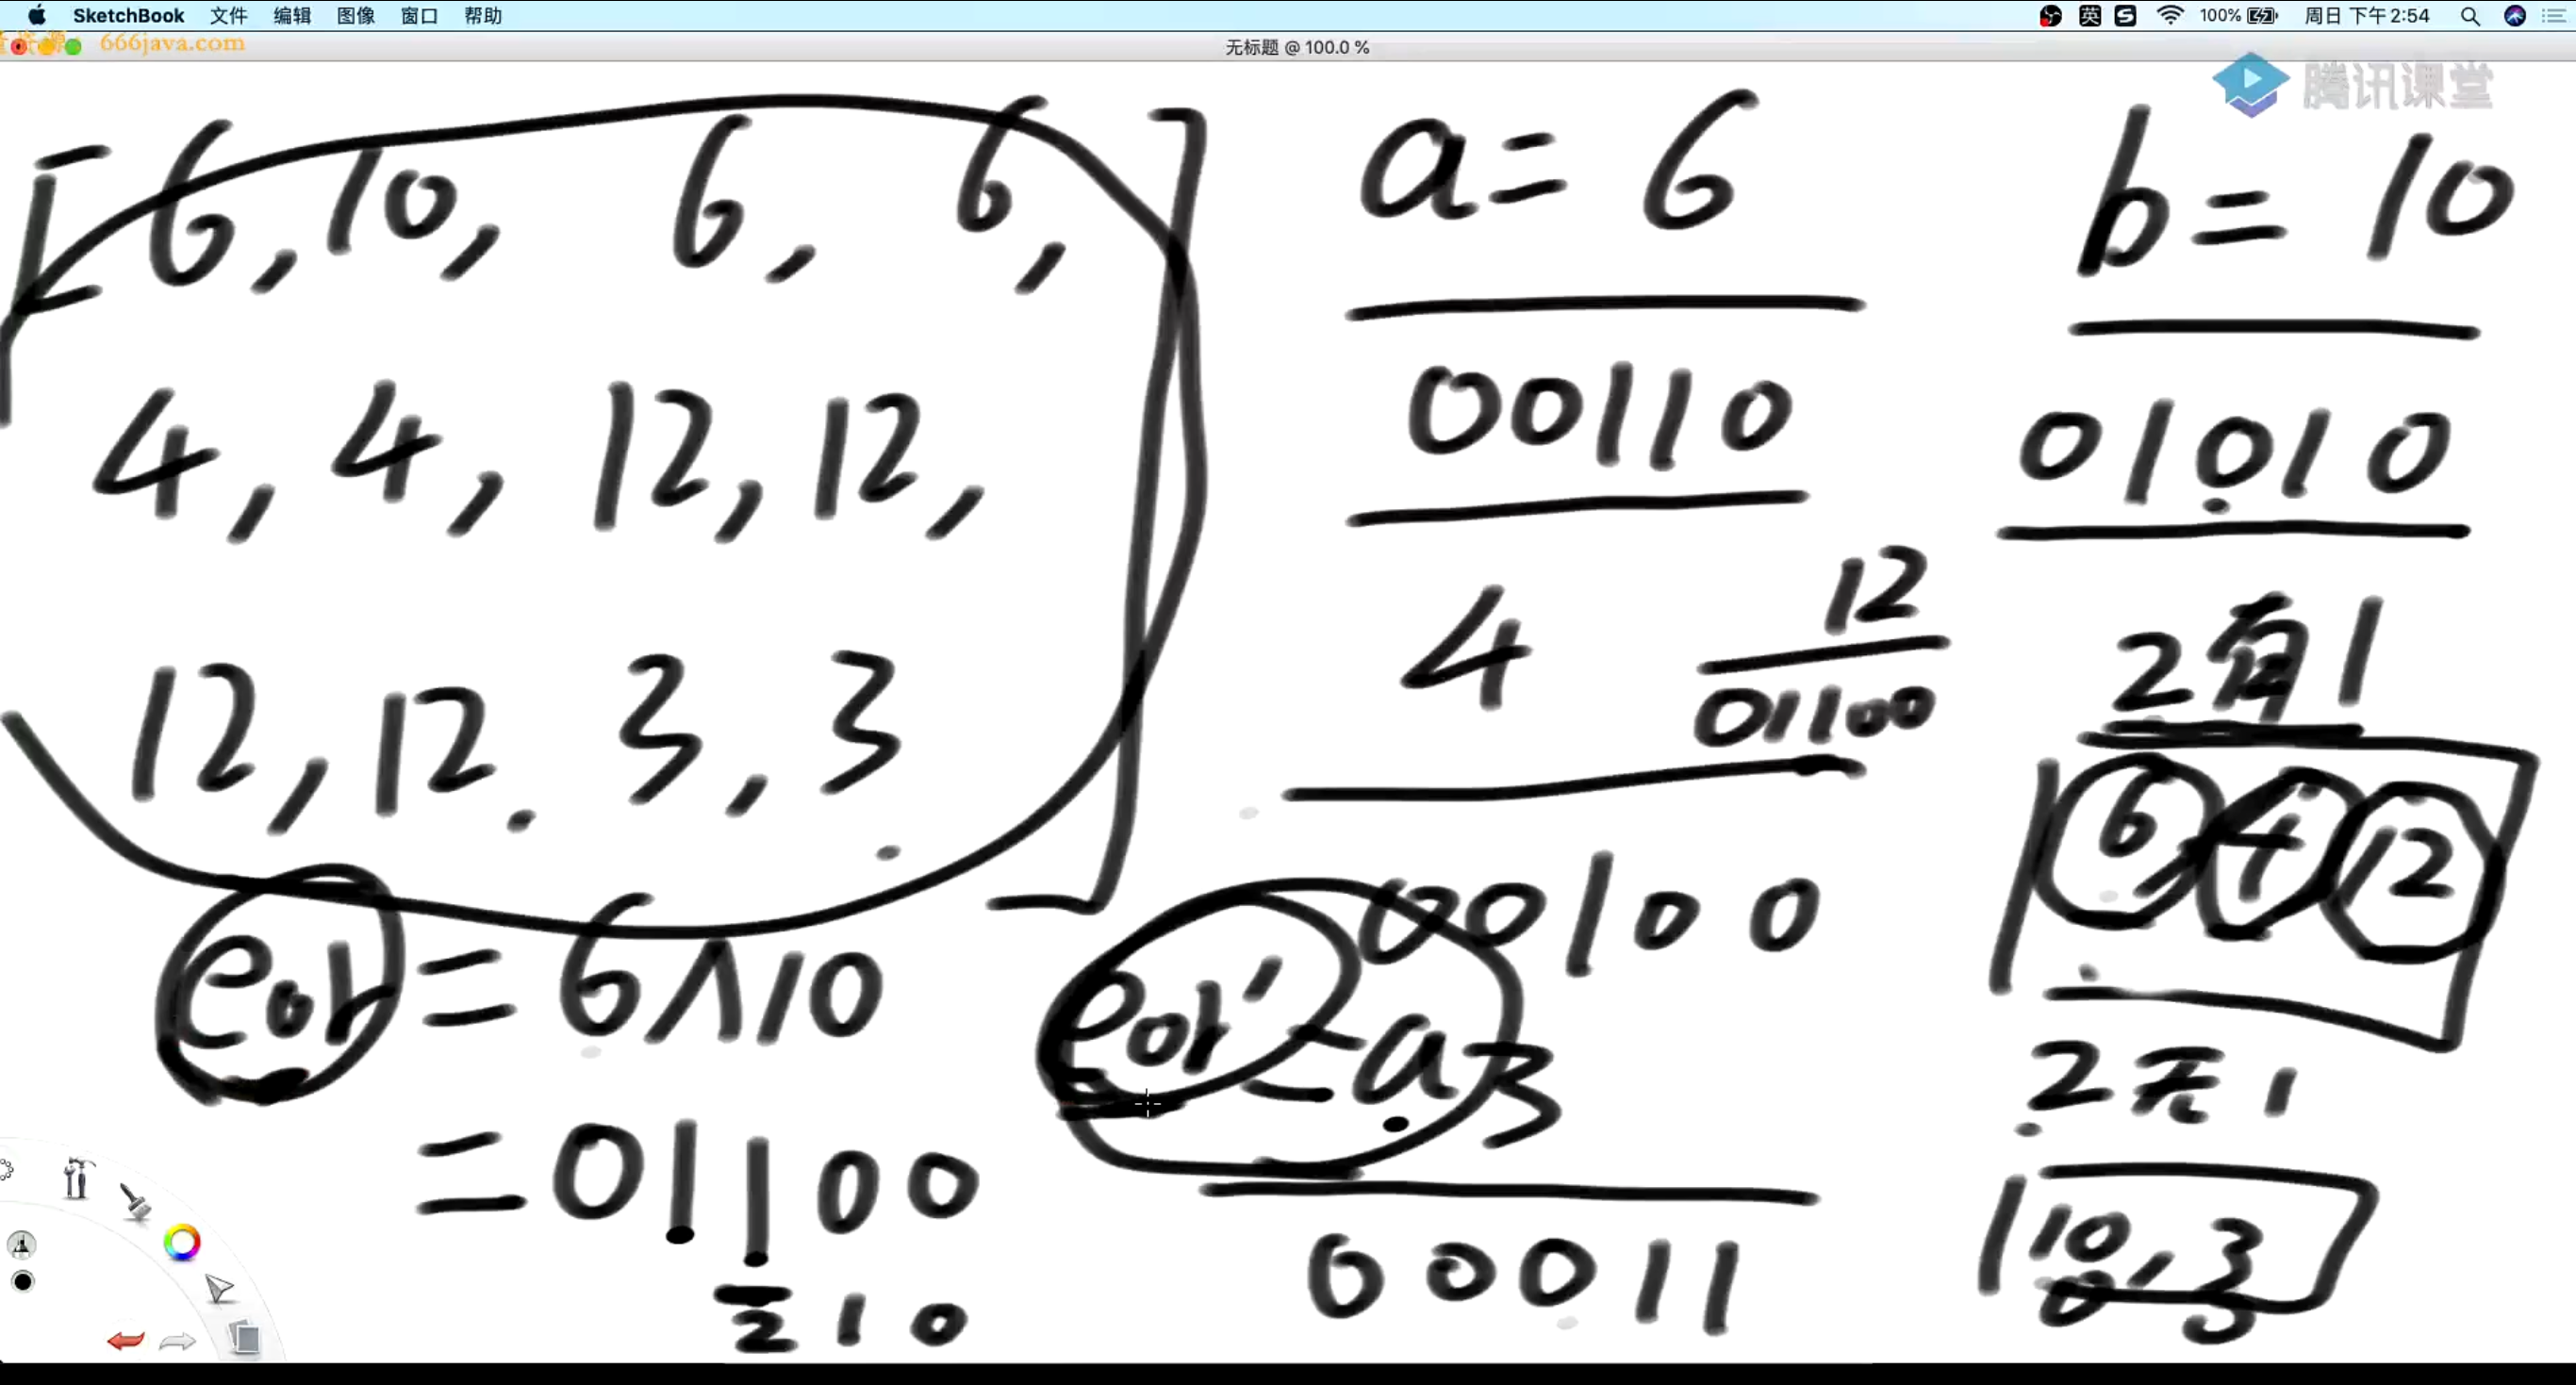 SketchBook 文件 编辑 图像 窗口 帮助
英 100% 周日 下午2:54
666java.com
无标题 @ 100.0 %
腾讯课堂
[6, 10, 6, 6,
4, 4, 12, 12,
12, 12. 3, 3 ]
eor = 6 ∧ 10
= 01100
2 1 0
a = 6
00110
4
12
01100
00100
eor' = a
3
00011
b = 10
01010
2有1
6 4 12
2无1
10, 3